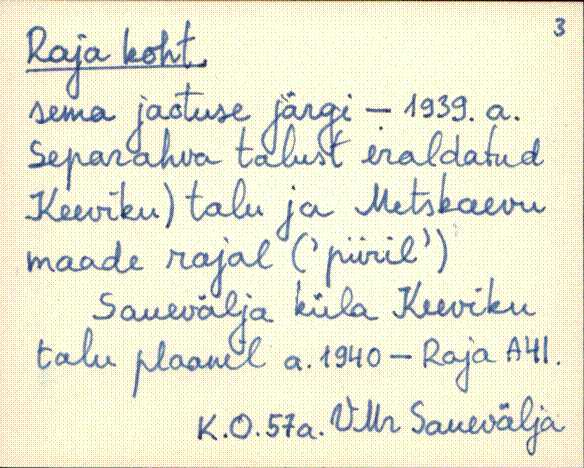 3
Raja koht
sema jaotuse järgi — 1939. a.
Separahva talust eraldatud
Keeviku) talu ja Metskaevu
maade rajal ('piiril')
Sauevälja küla Keeviku
talu plaanil a. 1940 — Raja A41.
K.O.57a. VMr Sauevälja